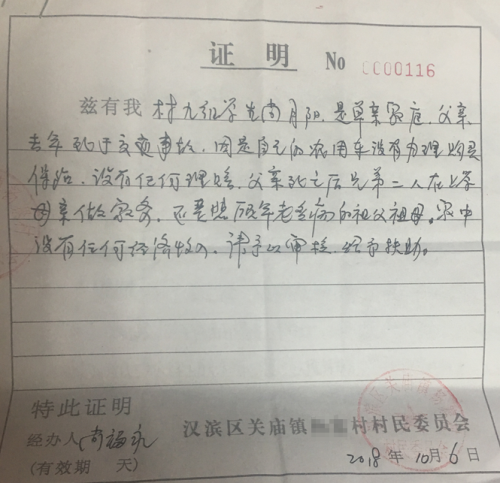 证 明 No 0000116
兹有我 村九组学生尚月阳，是单亲家庭，父亲
去年死于交通事故，因是自己的农用车没有办理购买
保险，没有任何理赔，父亲死之后兄弟二人在上学
母亲做家务，还要照顾年老多病的祖父祖母。家中
没有任何经济收入，请予以审核，给予扶助。
特此证明
经办人 尚福
汉滨区关庙镇 村村民委员会
(有效期 天)
2018年10月6日